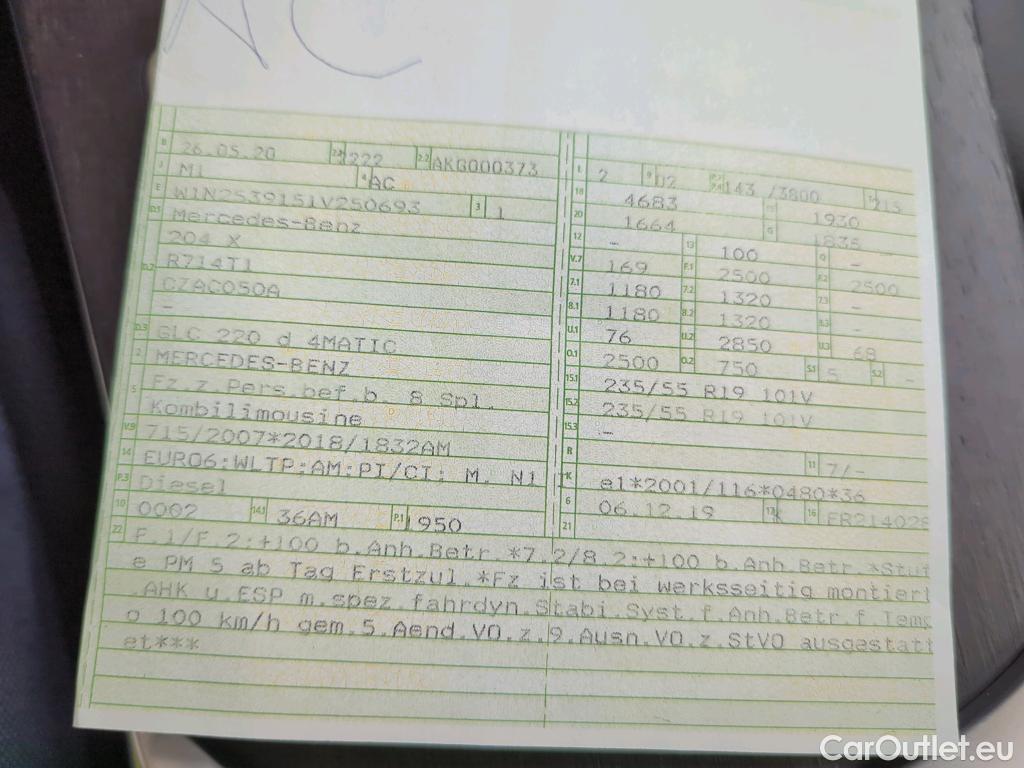 NC
B 26.05.20 2.1 1222 2.2 AKG000373
J M1 4 AC
E W1N2539151V250693 3 1
D.1 Mercedes-Benz
204 X
D.2 R714T1
CZAC050A
-
D.3 GLC 220 d 4MATIC
2 MERCEDES-BENZ
5 Fz.z.Pers.bef.b. 8 Spl.
Kombilimousine
V.9 715/2007*2018/1832AM
14 EURO6;WLTP;AM;PI/CI; M, N1 I
P.3 Diesel
10 0002 14.1 36AM P.1 1950
L 2 9 02 P.2 P.4 143 /3800 T 215
18 4683 19 1930
20 1664 G 1835
12 - 13 100 Q -
V.7 169 F.1 2500 F.2 2500
7.1 1180 7.2 1320 7.3 -
8.1 1180 8.2 1320 8.3 -
U.1 76 U.2 2850 U.3 68
O.1 2500 O.2 750 S.1 5 S.2 -
15.1 235/55 R19 101V
15.2 235/55 R19 101V
15.3 -
R 11 7/-
K e1*2001/116*0480*36
6 06.12.19 17 K 16 FR214028
21
22 F.1/F.2:+100 b.Anh.Betr.*7.2/8.2:+100 b.Anh.Betr.*Stuf
e PM 5 ab Tag Erstzul.*Fz ist bei werksseitig montiert
.AHK u.ESP m.spez.fahrdyn.Stabi.Syst.f.Anh.Betr.f.Temp
o 100 km/h gem.5.Aend.VO.z.9.Ausn.VO.z.StVO ausgestatt
et***
CarOutlet.eu